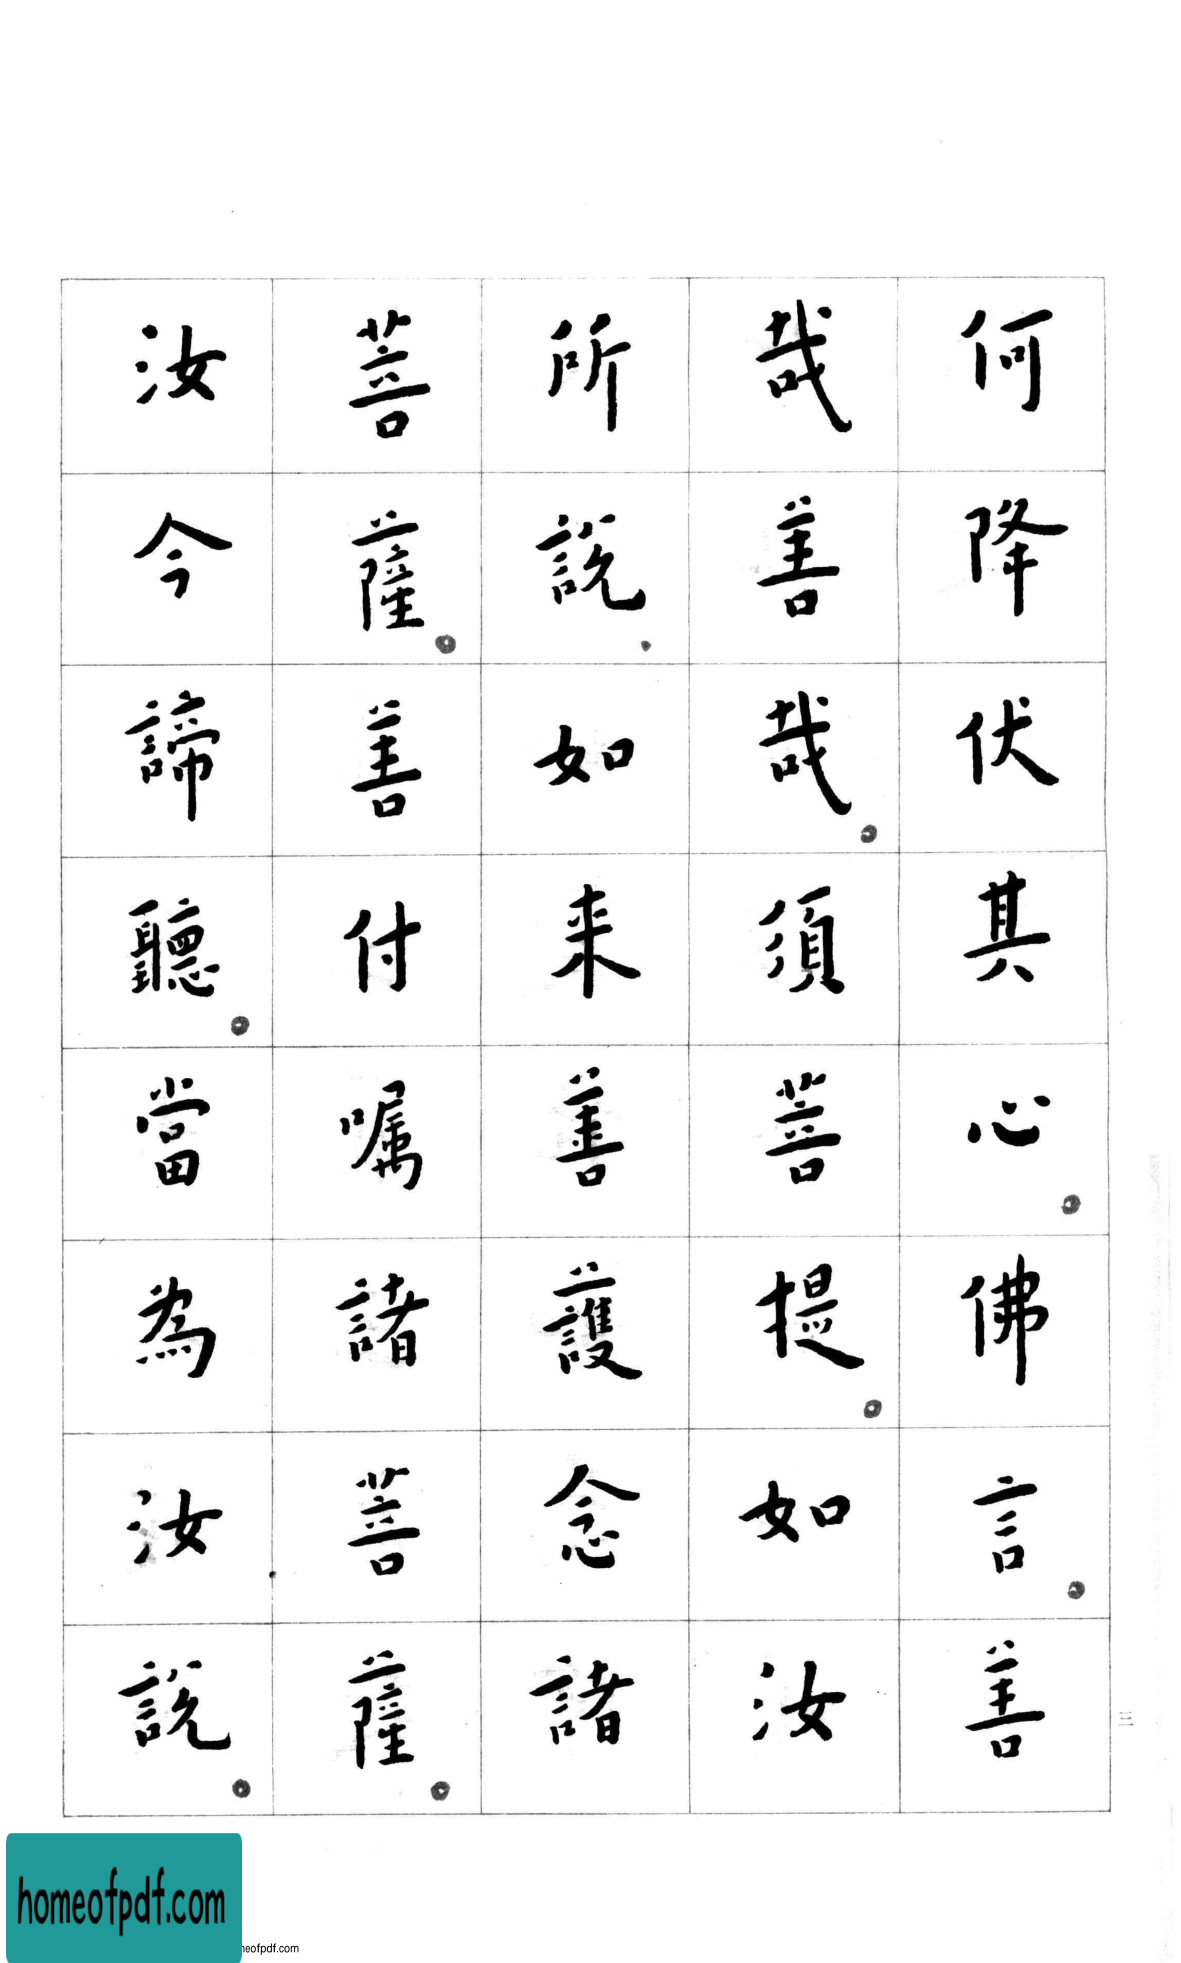 何降伏其心。佛言。善
哉善哉。須菩提。如汝
所說.如来善護念諸
菩薩。善付嘱諸菩薩。
汝今諦聽。當為汝說。
三
homeofpdf.com